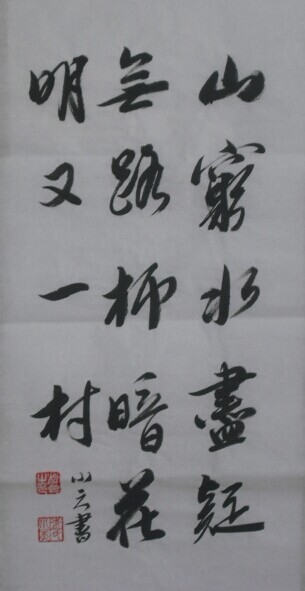 山窮水盡疑
無路柳暗花
明又一村
小云書